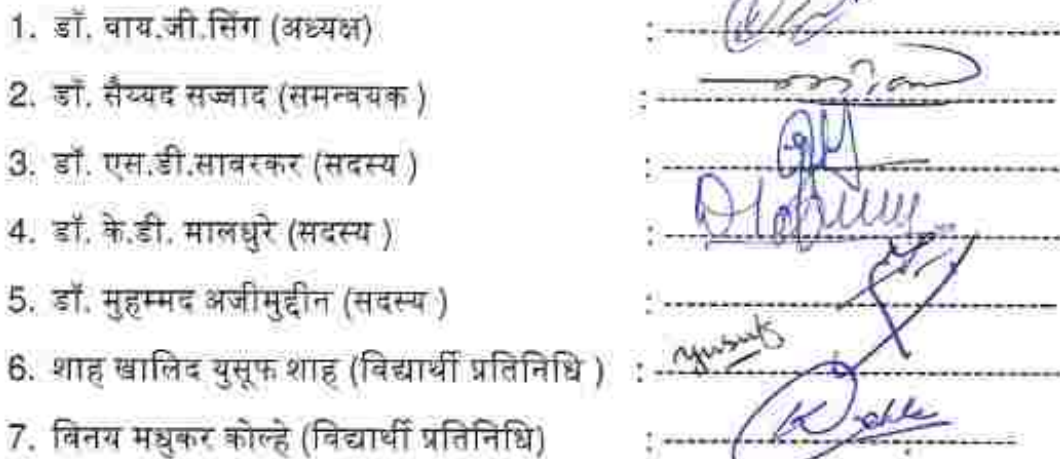 1. डॉ. वाय.जी.सिंग (अध्यक्ष) :
2. डॉ. सैय्यद सज्जाद (समन्वयक ) :
3. डॉ. एस.डी.सावरकर (सदस्य ) :
4. डॉ. के.डी. मालधुरे (सदस्य ) :
5. डॉ. मुहम्मद अजीमुद्दीन (सदस्य ) :
6. शाह खालिद युसूफ शाह (विद्यार्थी प्रतिनिधि ) : yusuf
7. विनय मधुकर कोल्हे (विद्यार्थी प्रतिनिधि) :